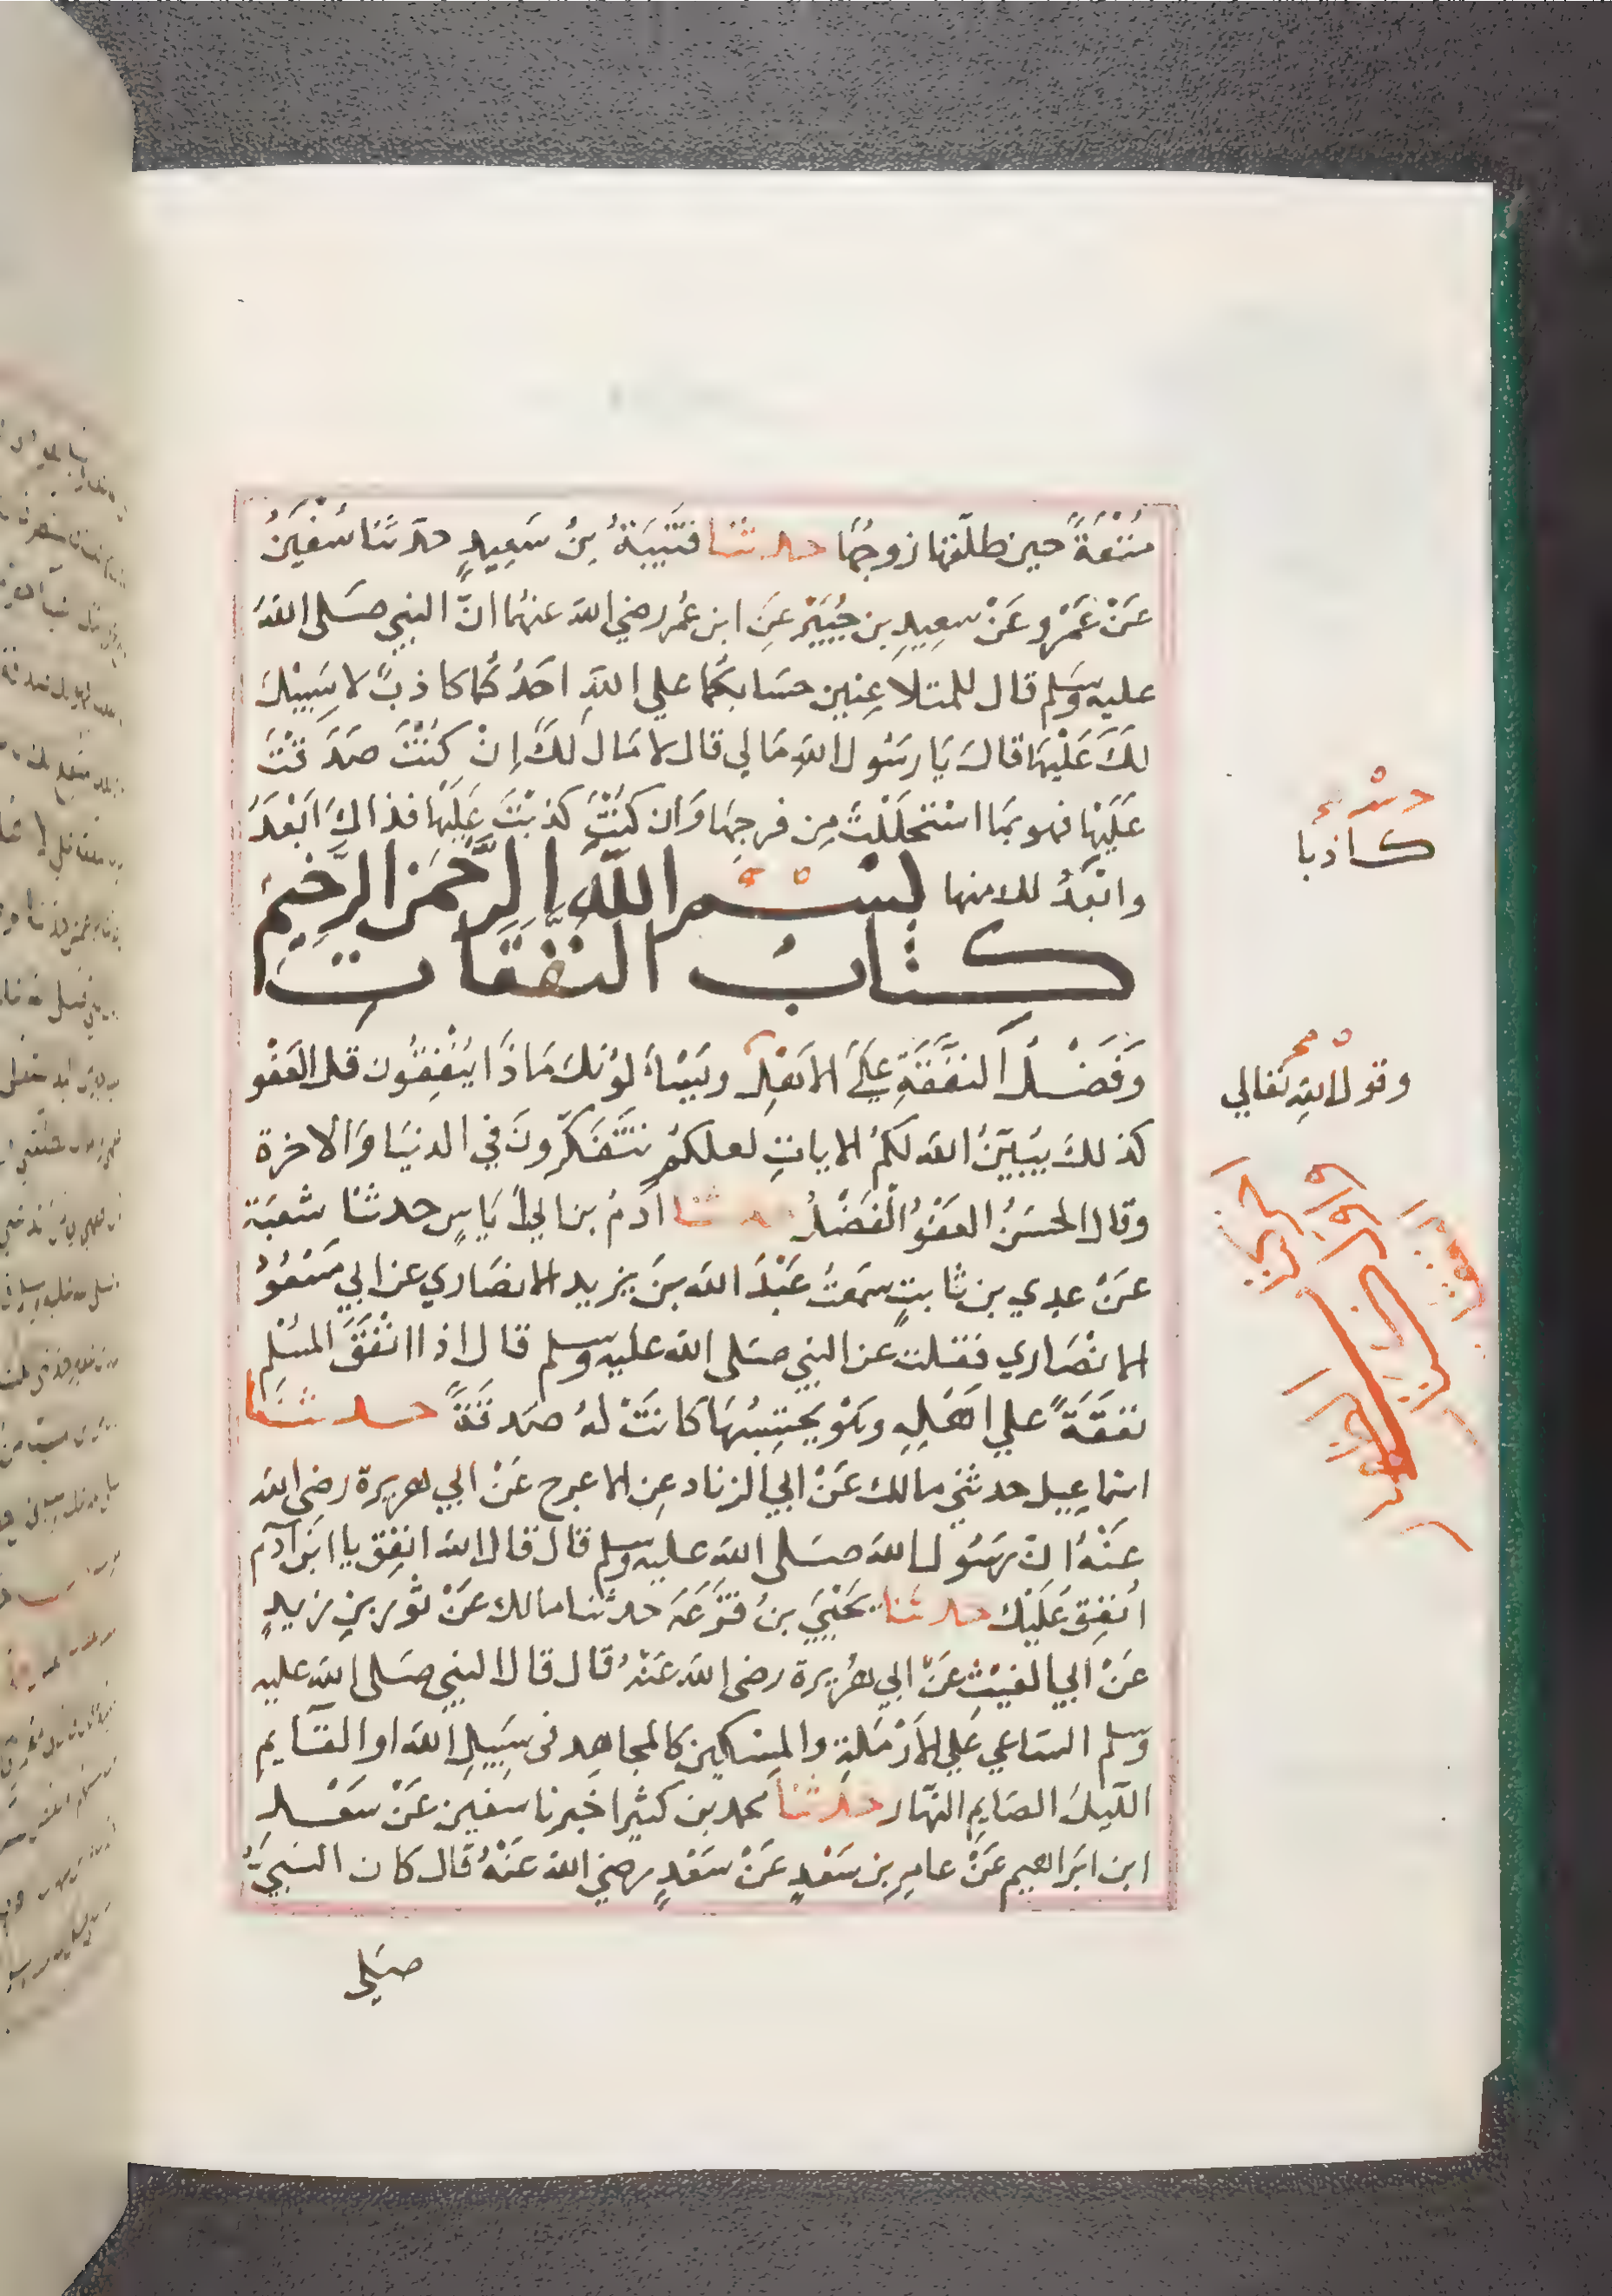 مُتْعَةً حين طلّقها زوجُهَا حدثنا قُتَيْبَةُ بنُ سَعِيدٍ حدّثَنَا سُفْيَنُ
عَنْ عَمْرٍو عَنْ سعِيدِ بن جُبَيْرٍ عَنِ ابن عُمَر رضي الله عنهُما انّ النبي صَلى اللهُ
عليه وسلم قال للمتلاعِنين حسَابكُما علي اللهِ احَدُكُما كاذبٌ لا سَبِيْلَ
لكَ عَلَيْهَا قالَ يَا رسُول اللهِ مَالي قال لا مَال لَكَ اِنْ كُنْتَ صَدَقْتَ
عَلَيْهَا فهو بمَا اسْتَحْلَلْتَ مِن فرجِهَا وَان كُنْتَ كذبْتَ عَلَيْهَا فذاكَ اَبْعَدُ
وابْعَدُ لك منها بسْمِ اللّهِ الرَّحْمَنِ الرَّحِيمِ
كتابُ النفَقَاتِ
وَفَضْلُ النفَقَةِ عَلَى الاَهْلِ ويَسْأَلُونَكَ مَاذَا يُنْفِقُون قل العَفْو
كذلكَ يُبَيّنُ الله لكمُ الاياتِ لعلكمْ تَتَفَكّرونَ في الدنيَا وَالاخرة
وقال الحسَنُ العَفْوُ الْفَضْلُ حدثنا ادَمُ بن ابي اِيَاسٍ حدثنا شعبَة
عَنْ عدِي بن ثابتٍ سمعتُ عَبْدَ الله بنَ يزيد الانصَاري عن ابي مَسْعُوْ
الانْصَاري فقلت عن النبي صَلى الله عليه وسلم قال اذا انْفَقَ المُسْلِم
نفقَةً علي اهْلِهِ وهْو يحتسِبُهَا كانَتْ لهُ صَدقةً حدثنا
اسْماعِيل حدثني مالك عَنْ ابي الزناد عِن الاعرج عَنْ ابي هريرة رضي الله
عنْهُ انّ رسُول الله صَلى الله عليه وسلم قال قال الله انفِق يا ابنَ آدم
اُنفِق عَلَيْك حدثنا يَحْيَي بنُ قزَعَة حدثنا مالك عَنْ ثور بن زيدٍ
عَنْ ابي الغيْثِ عَنْ ابي هرُيرة رضي الله عَنْهُ قال قال النبي صَلى الله عليه
وسلم السَاعي عَلي الاَرْمَلةِ والمِسْكين كالمجاهد في سَبِيلِ الله او القَايم
اللّيلَ الصَايم النّهَار حدثنا محمد بن كثير اخبرنا سفين عَنْ سَعْد
ابن ابَراهيم عَنْ عامِرِ بن سَعْدٍ عَنْ سَعْدٍ رضي الله عَنْهُ قال كان النبيُّ
صَلي
كاذبا
وقول الله تعالي